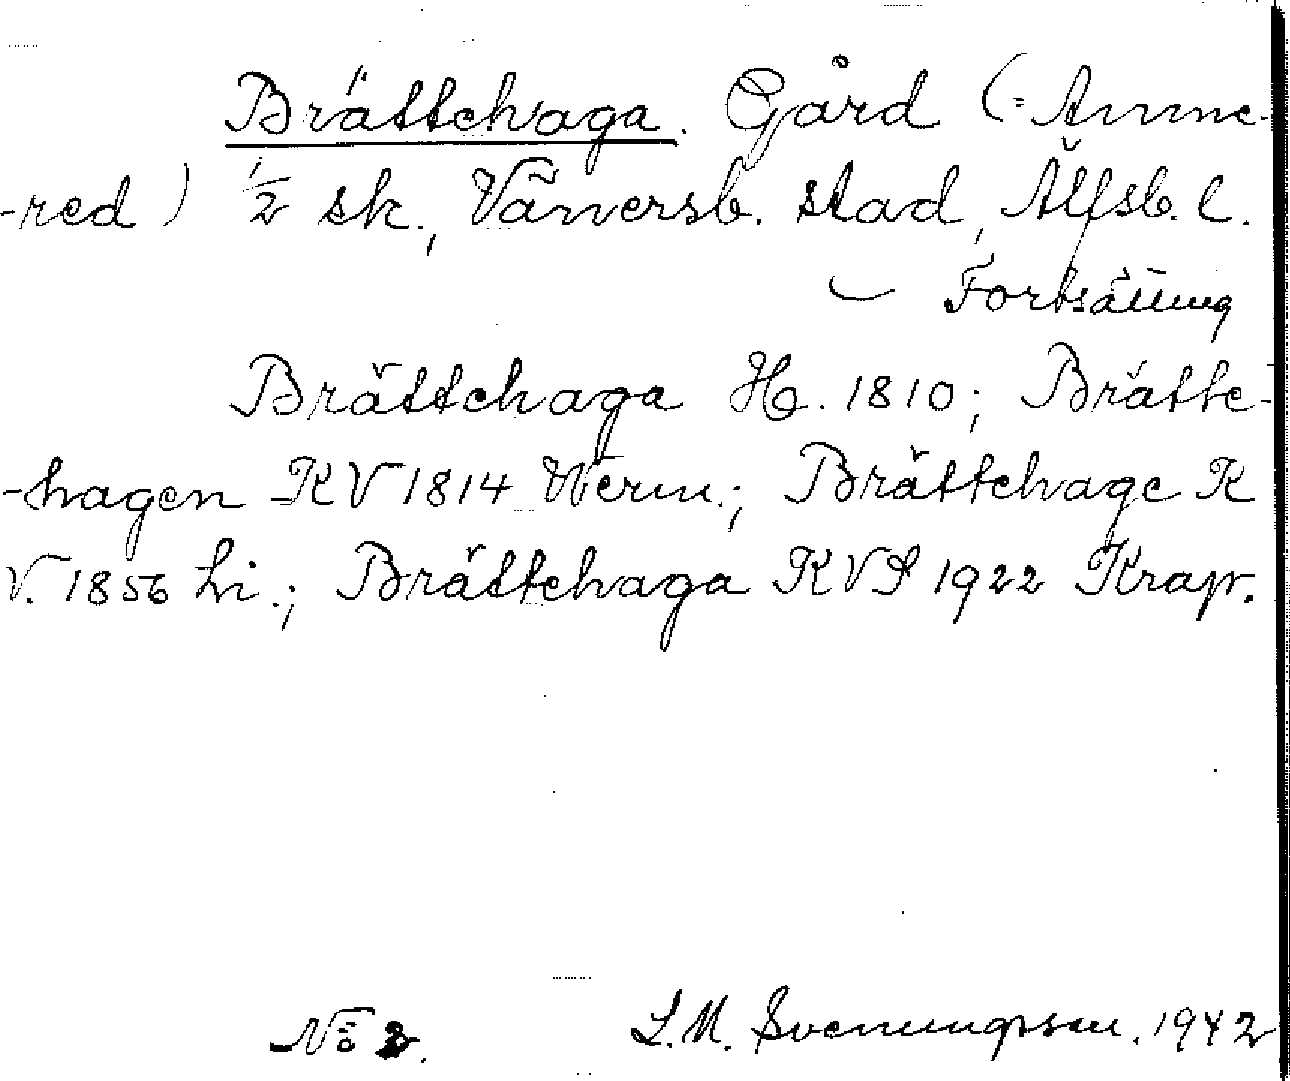 Brättehaga. Gård (= Anne-
-red) 1/2 sk., Vänersb. stad, Älfsb. l.
Fortsättning
Brättehaga H. 1810; Brätte-
-hagen KV 1814 Werm.; Brättehage K
V. 1856 Li.; Brättehaga KVS 1922 Krap.
No 2. L.M. Svenungsson. 1942